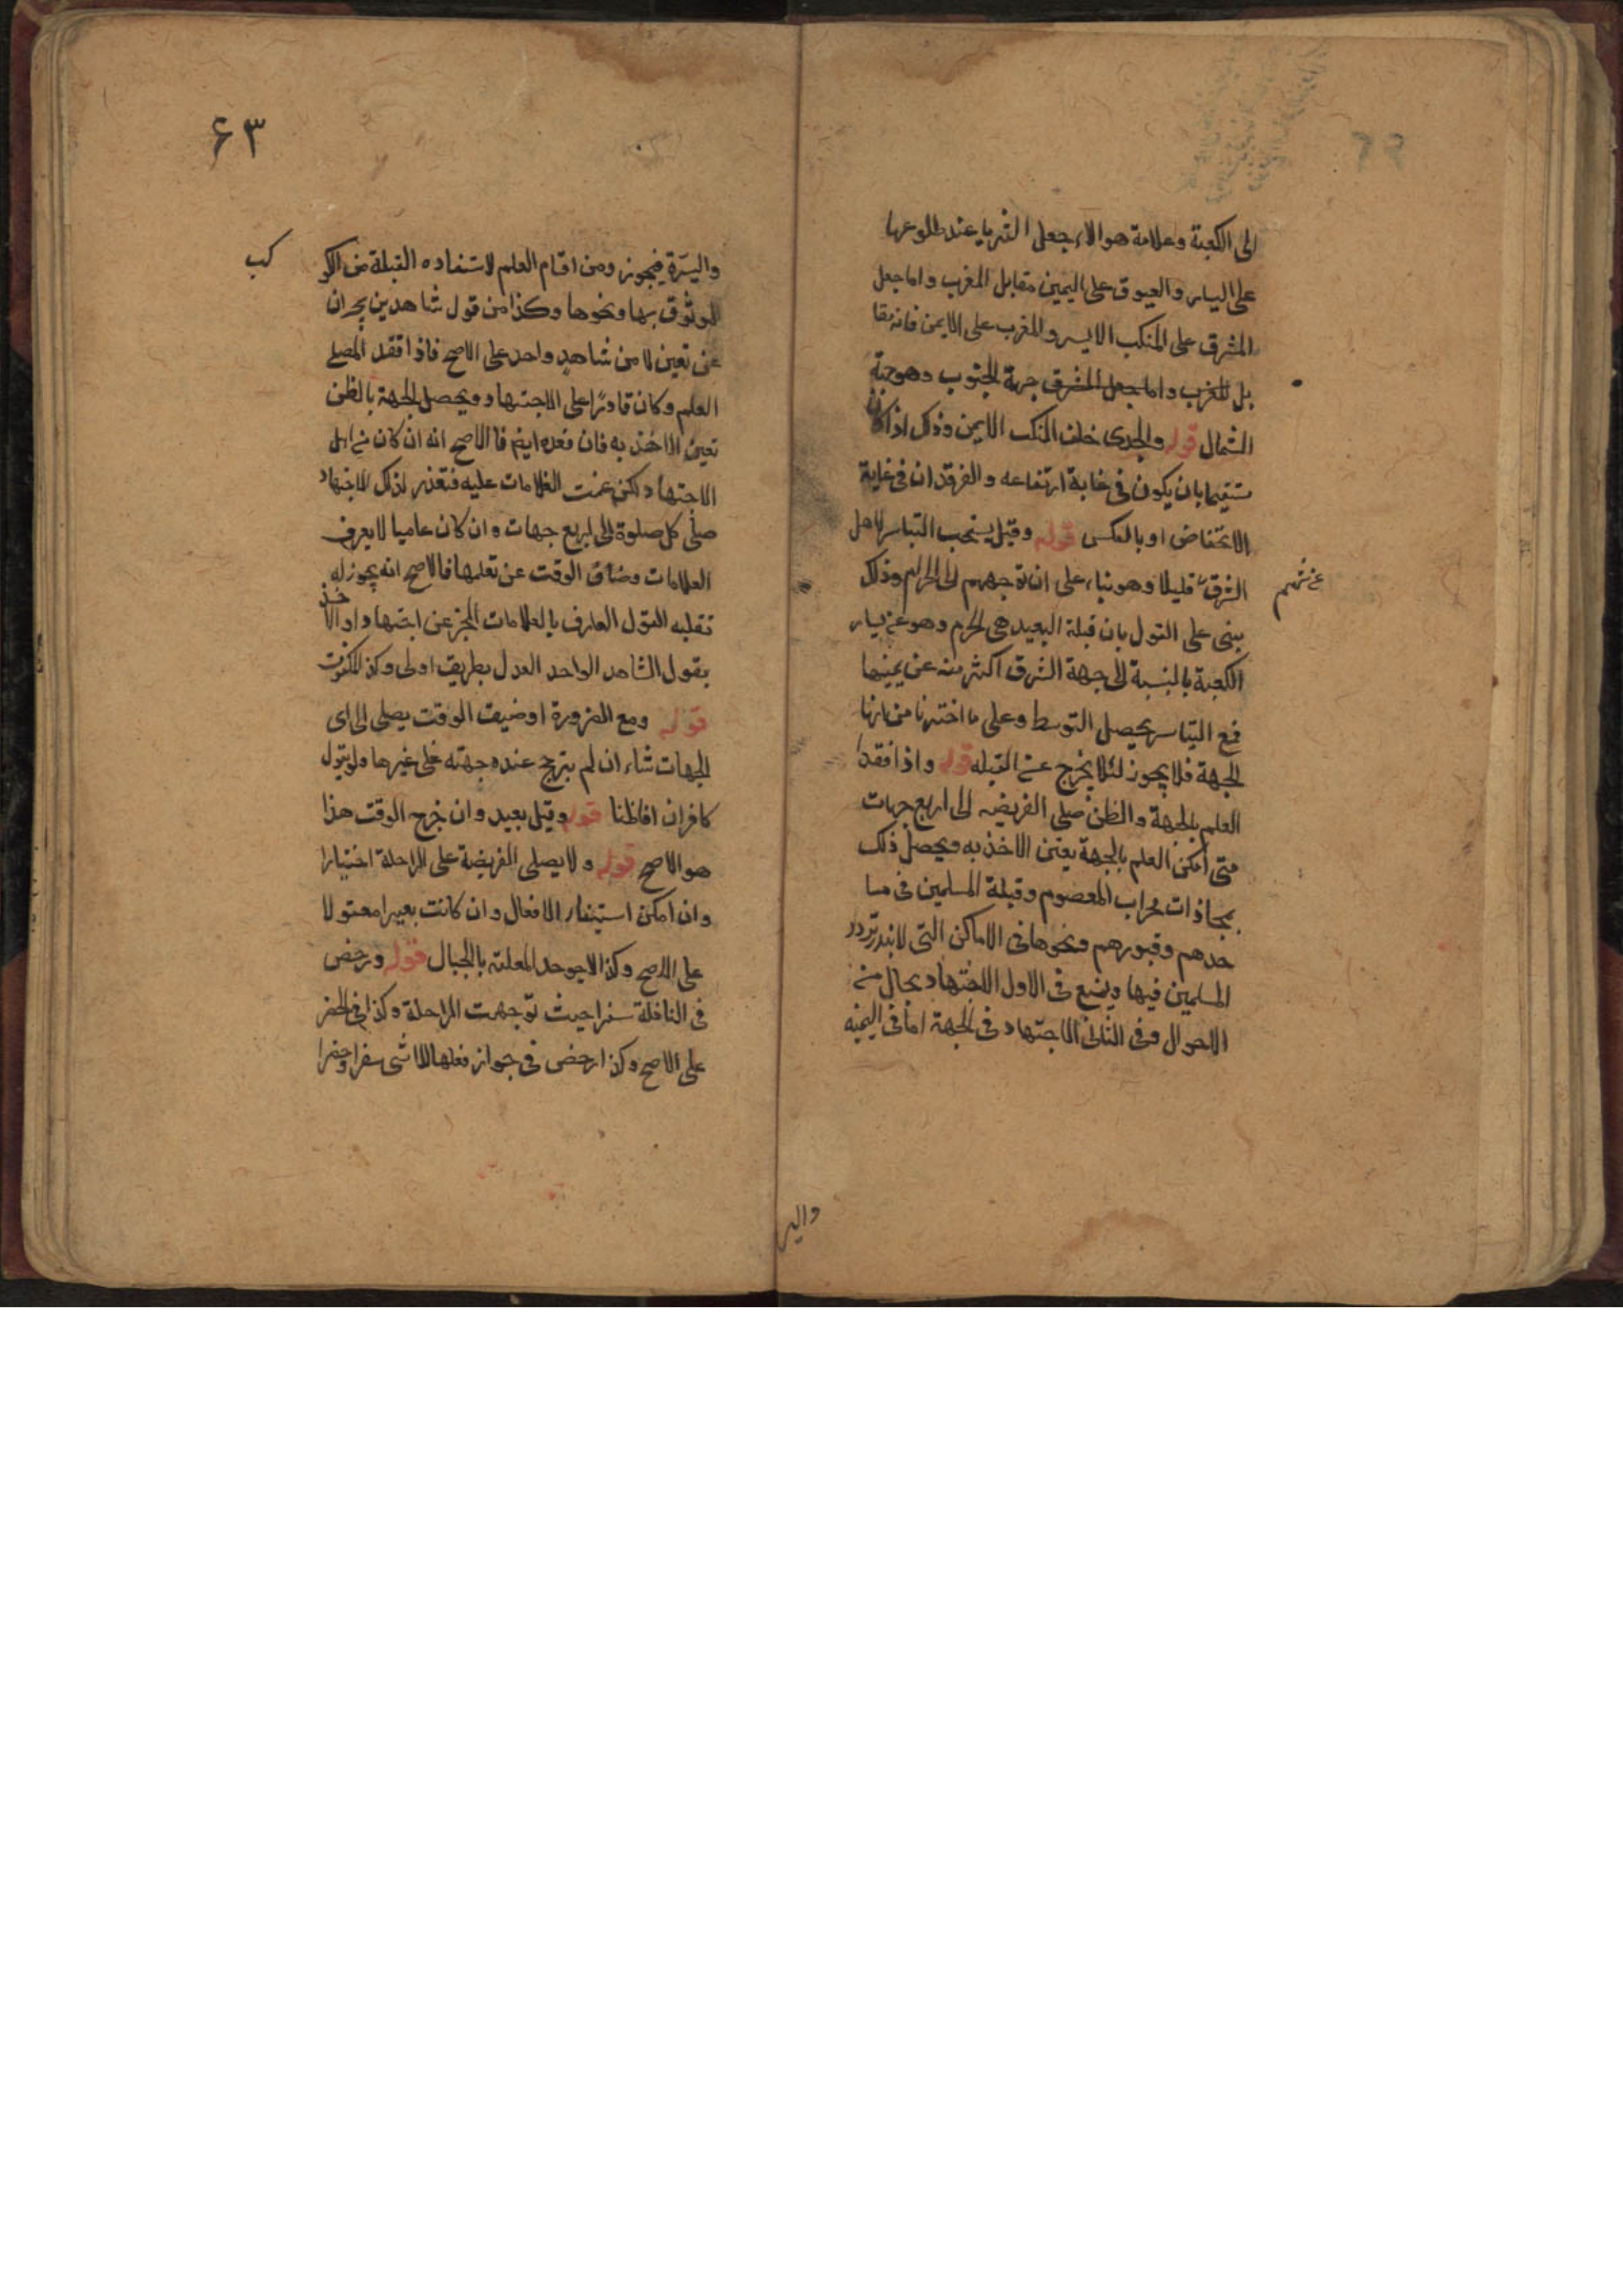 الى الكعبة وعلامة هوالاء جعل الثريا عند طلوعها
على اليسار والعيوق على اليمين مقابل المغرب واما جعل
المشرق على المنكب الايسر والمغرب على الايمن فانه مقا
بل للمغرب واما جعل المشرق جهة الجنوب وهو جهة
الشمال قوله والجدى خلف المنكب الايمن وذلك اذا كان
مستقيما بان يكون فى غاية ارتفاعه والفرقدان فى غاية
الانخفاض او بالعكس قوله وقيل يستحب التياسر لاهل
الشرق قليلا وهو بناء على ان توجههم الى الحرام وذلك
يبنى على القول بان قبلة البعيد هى الحرم وهو عن يسار
الكعبة بالنسبة الى جهة الشرق اكثر منه عن يمينها
فمع التياسر يحصل التوسط وعلى ما اخترنا من انها
الجهة فلا يجوز لئلا يخرج عن القبله قوله واذا فقد
العلم بالجهة والظن صلى الفريضه الى اربع جهات
متى امكن العلم بالجهة يعين الاخذ به ويحصل ذلك
بمحاذات محراب المعصوم وقبلة المسلمين فى مسا
جدهم وقبورهم ونحوها فى الاماكن التى تردد
المسلمين فيها ويمنع فى الاول الاجتهاد بحال من
الاحوال وفى الثانى الاجتهاد فى الجهة اما فى اليمنه
والير
۶۳
كب
واليسرة فيجوز ومن اقسام العلم لاستفاده القبلة من الكو
الموثوق بها ونحوها وكذا من قول شاهدين يخبران
عن تعين لا من شاهد واحد على الاصح فاذا فقد المصلى
العلم وكان قادرًا على الاجتهاد ويحصل الجهة بالظن
تعين الاخذ به فان فقده ايضا فالاصح انه ان كان من اهل
الاجتهاد لكن عمت العلامات عليه فتعذر لذلك الاجتهاد
صلى كل صلوة الى اربع جهات وان كان عاميا لا يعرف
العلامات وضاق الوقت عن تعلمها فالاصح انه يجوز له
تقليد القول العارف بالعلامات المخبر عن اجتهاد او الاخذ
بقول الشاهد الواحد العدل بطريق اولى وكذا المكفوف
قوله ومع الضرورة او ضيق الوقت يصلى الى اى
الجهات شاء ان لم يترجح عنده جهته على غيرها ولو بقول
كافران افاد ظنا قوله وقيل بعيد وان خرج الوقت هذا
هو الاصح قوله ولا يصلى الفريضة على الراحلة اختيارا
وان امكن استيفاء الافعال وان كانت بعيرا معقولا
على الاصح وكذا الارجوحة المعلقه بالحبال قوله ورخص
فى النافلة سفرا حيث توجهت الراحلة وكذا فى الحضر
على الاصح وكذا رخص فى جواز فعلها للماشى سفرا وحضرا